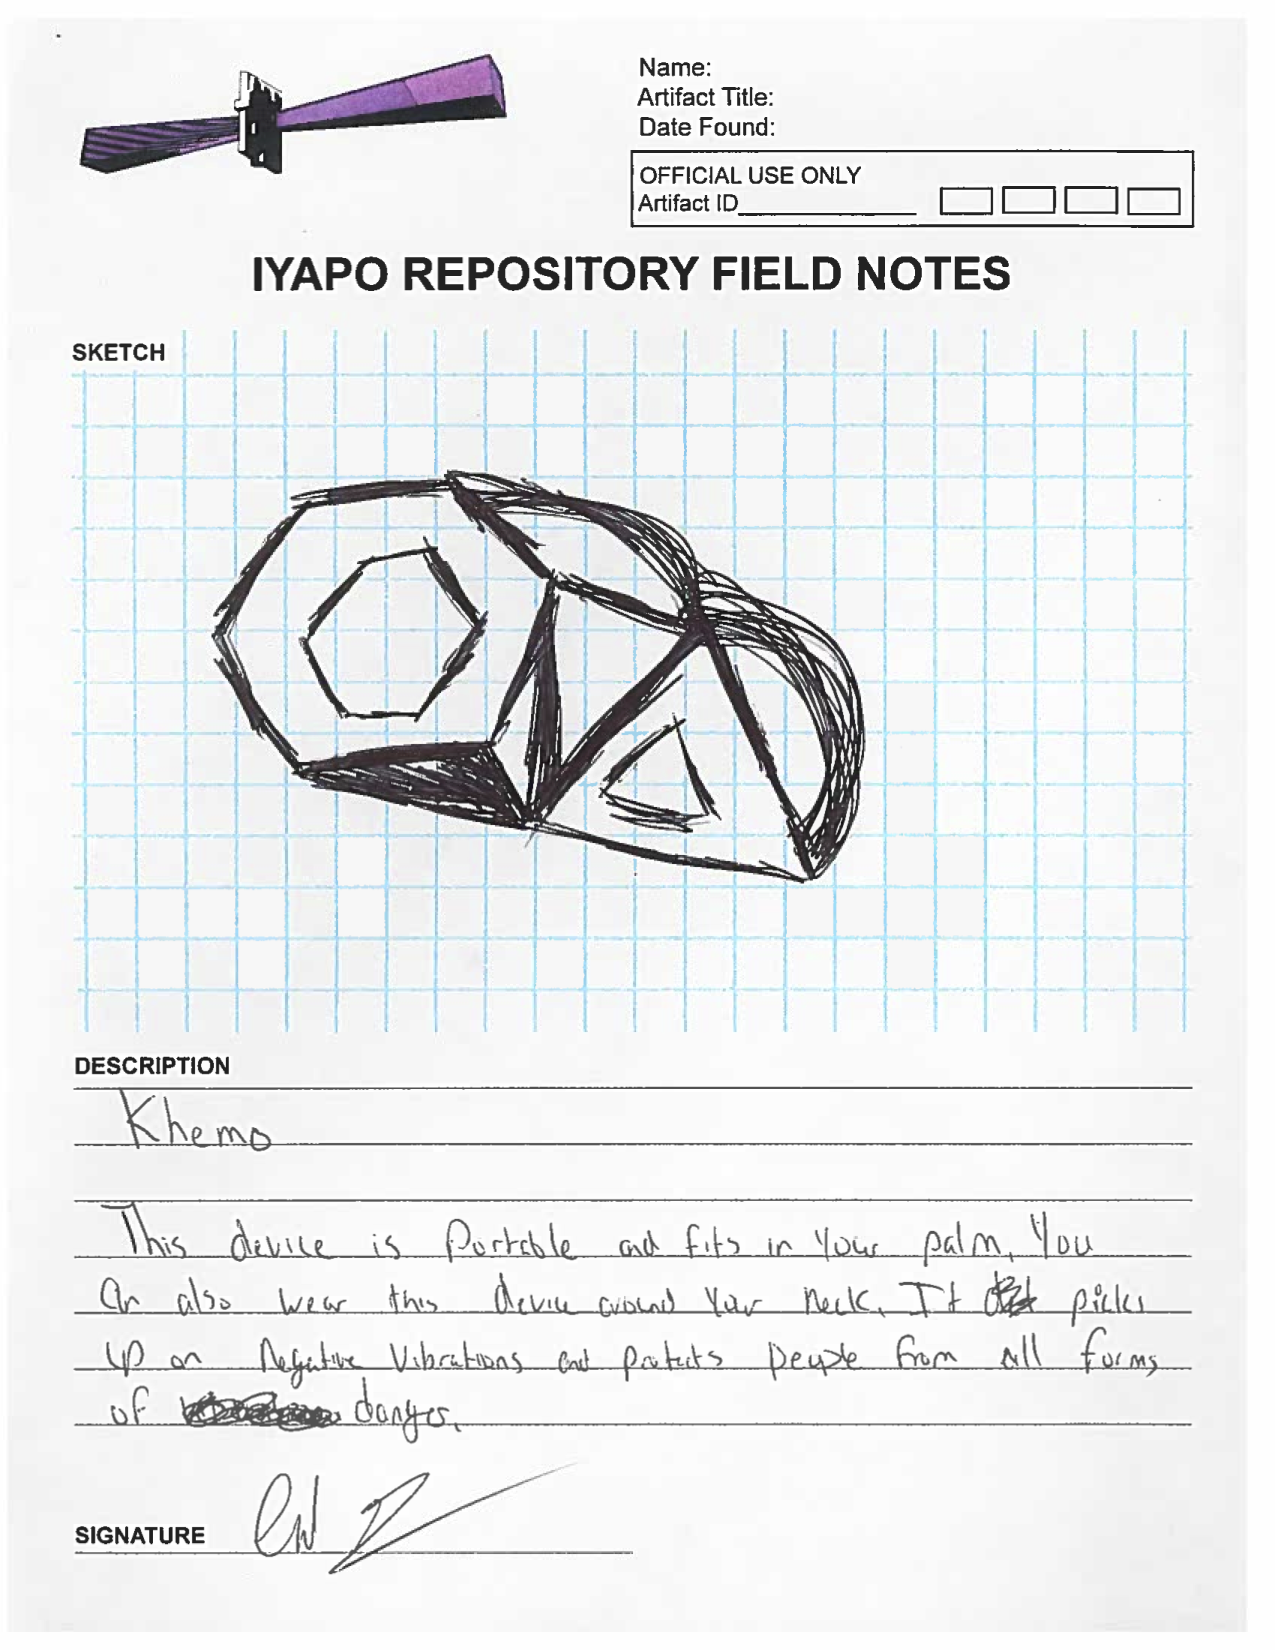 Name:
Artifact Title:
Date Found:
OFFICIAL USE ONLY
Artifact ID
IYAPO REPOSITORY FIELD NOTES
SKETCH
DESCRIPTION
Khemo
This device is Portable and fits in your palm. You
Can also wear this device around your neck. It picks
up on Negative Vibrations and protects people from all forms
of danger.
SIGNATURE